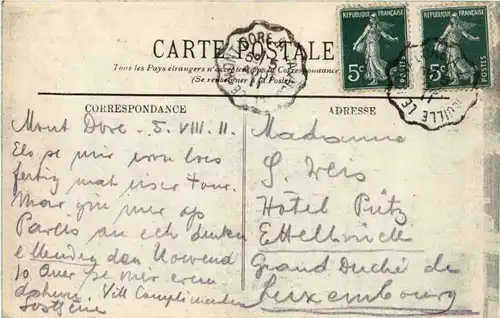 CARTE POSTALE
Tous les Pays étrangers n'acceptent pas la Correspondance
(Se renseigner à la Poste)
RÉPUBLIQUE FRANÇAISE
5c
POSTES
RÉPUBLIQUE FRANÇAISE
5c
POSTES
CORRESPONDANCE
Mont Dore - 5. VIII. 11.
Elo se mir vun
fertig mat user Tour.
Mar gin mer op
Paris an ech denken
e Mendeg den Nowend
10 Auer se mir erem
doheem. Vill Complimenten
ADRESSE
Madame
S. Weis
Hôtel Pütz
Ettelbrück
Grand Duché de
Luxembourg